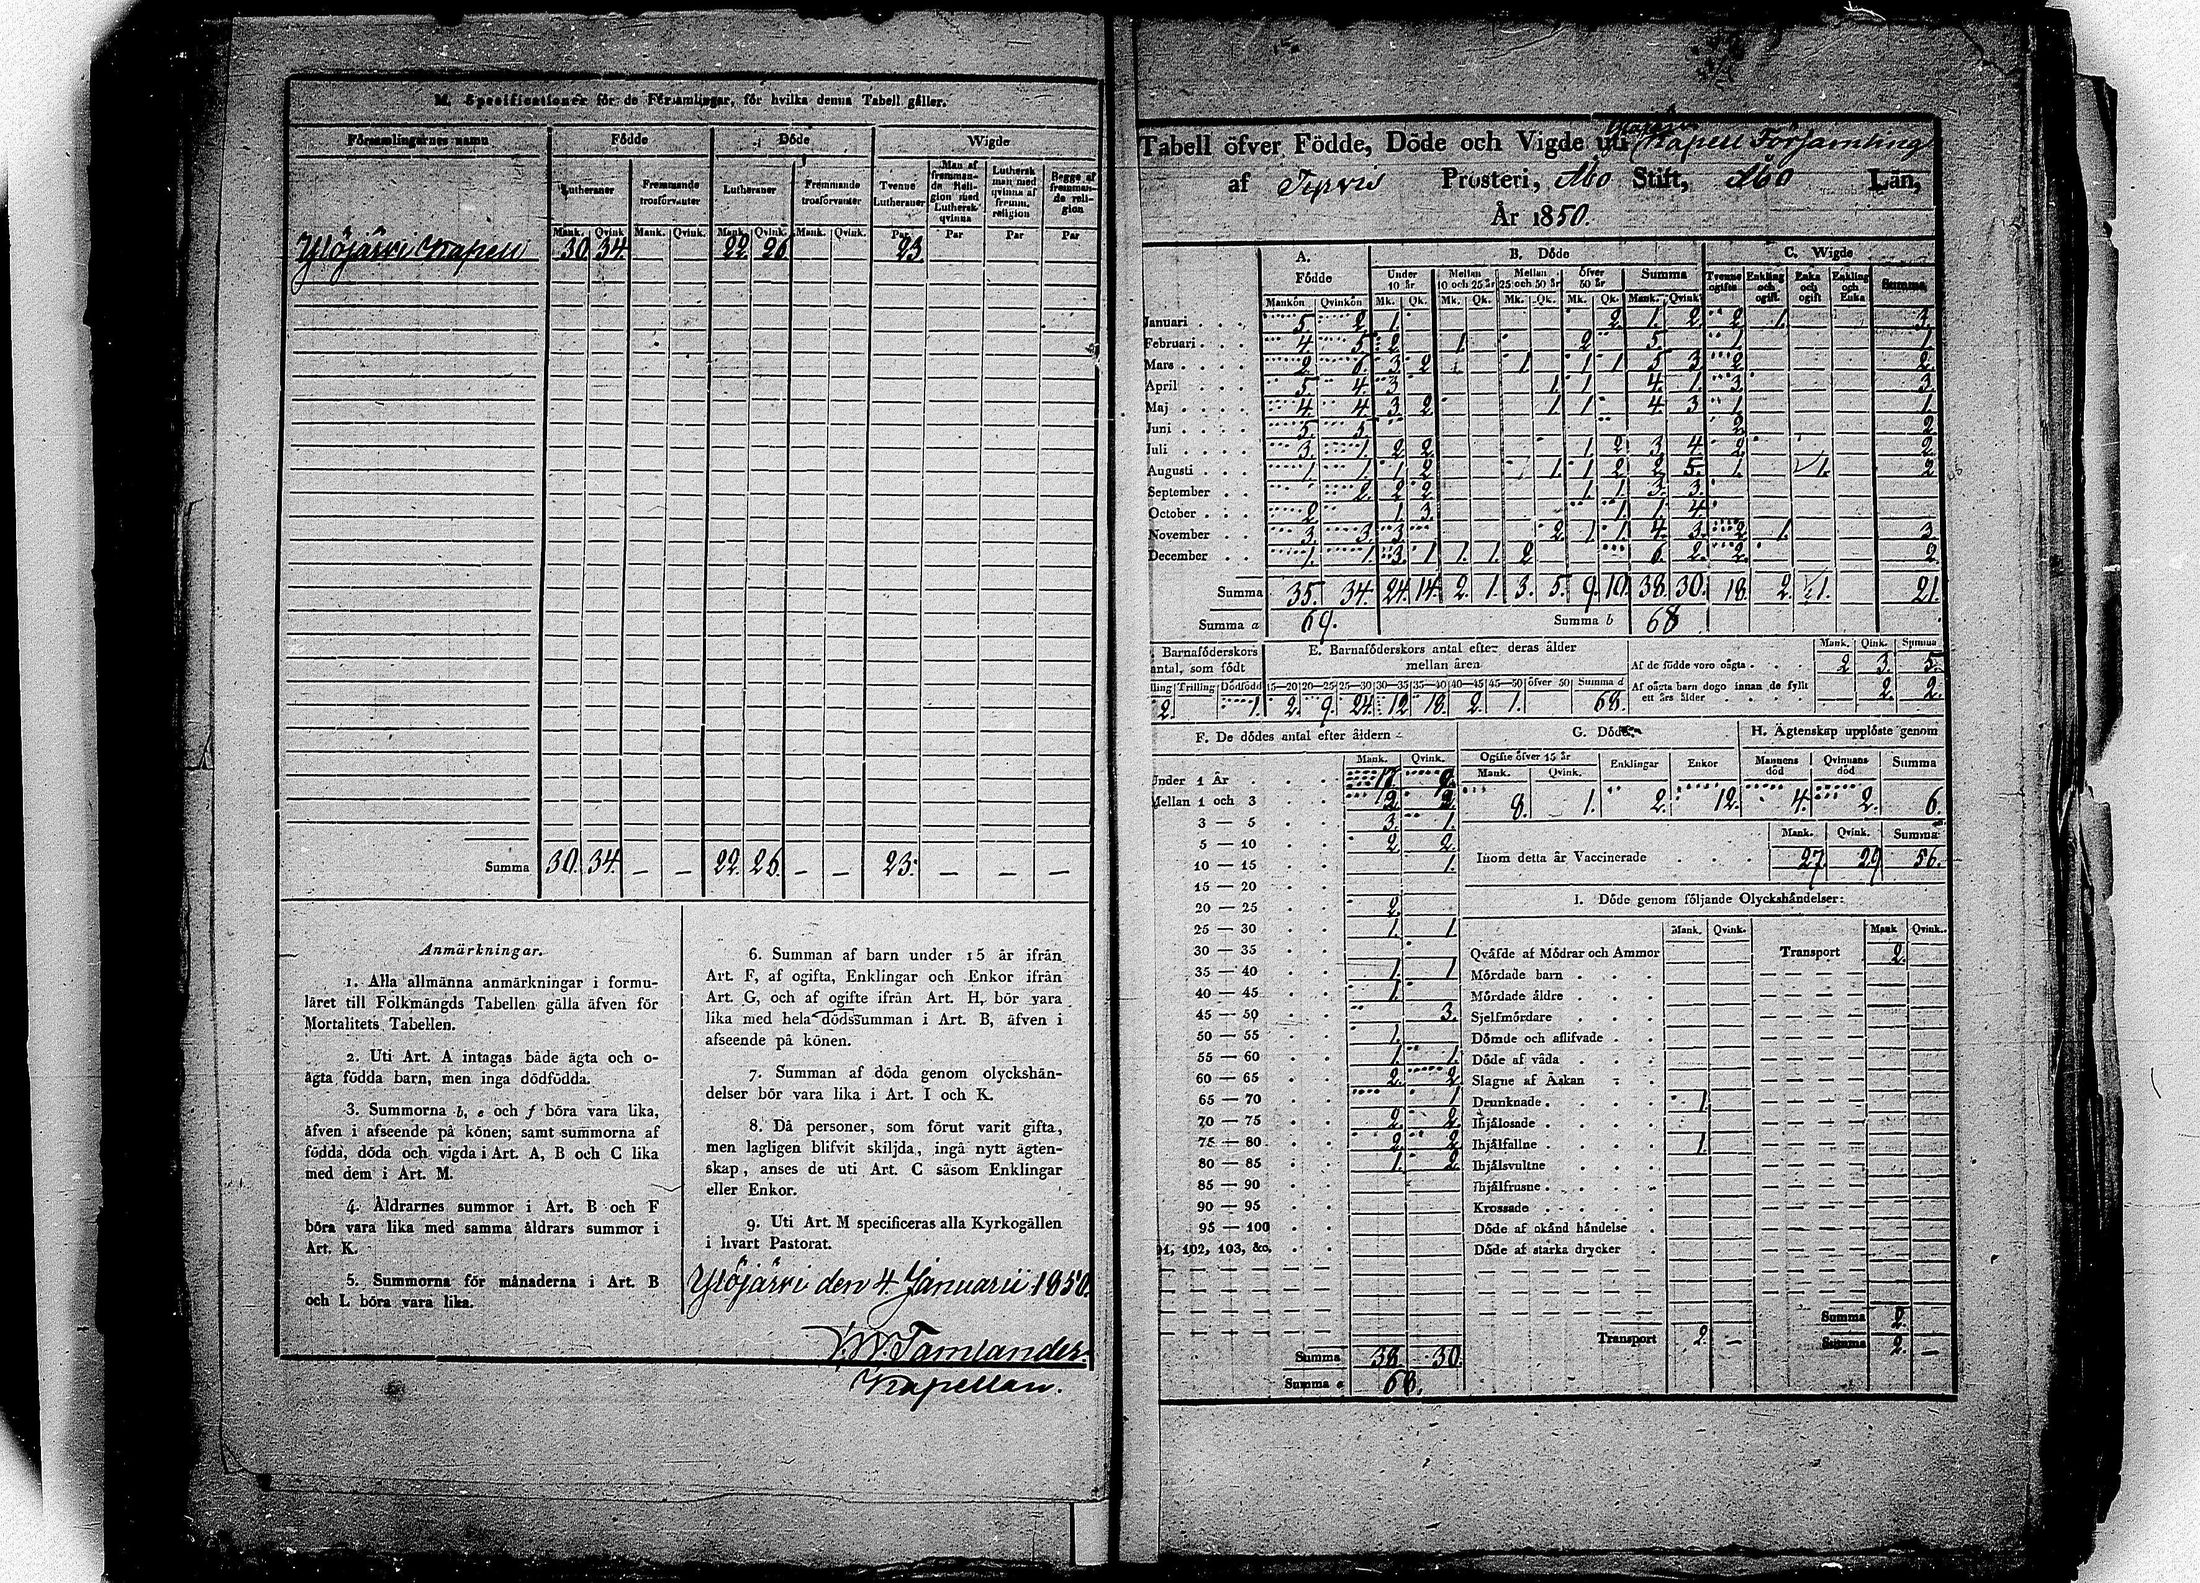 M. Specificationer för de Församlingar, för hvilka denna Tabell gäller.
Församlingarnes namn Födde Döde Wigde
Lutheraner Fremmande trosförvanter Lutheraner Fremmande trosförvanter Tvenne Lutheraner Man af fremmande Religion med Luthersk qvinna Luthersk man med qvinna af fremm. religion Begge af fremmande religion
Mank. Qvink Mank. Qvink. Mank. Qvink. Mank. Qvink. Par Par Par Par
Ylöjärvi Kapell 30 34. 22. 26 23
Summa 30. 34. — — 22. 26. — — 23. — — —
Anmärkningar.
1. Alla allmänna anmärkningar i formu-
läret till Folkmängds Tabellen gälla äfven för
Mortalitets Tabellen.
2. Uti Art. A intagas både ägta och o-
ägta födda barn, men inga dödfödda.
3. Summorna b, e och f böra vara lika,
äfven i afseende på könen; samt summorna af
födda, döda och vigda i Art. A, B och C lika
med dem i Art. M.
4. Åldrarnes summor i Art. B och F
böra vara lika med samma åldrars summor i
Art. K.
5. Summorna för månaderna i Art. B
och L böra vara lika.
6. Summan af barn under 15 år ifrån
Art. F, af ogifta, Enklingar och Enkor ifrån
Art. G, och af ogifte ifrån Art. H, bör vara
lika med hela dödssumman i Art. B, äfven i
afseende på könen.
7. Summan af döda genom olyckshän-
delser bör vara lika i Art. I och K.
8. Då personer, som förut varit gifta,
men lagligen blifvit skiljda, ingå nytt ägten-
skap, anses de uti Art. C såsom Enklingar
eller Enkor.
9. Uti Art. M specificeras alla Kyrkogällen
i hvart Pastorat.
Ylöjärvi den 4 Januarii 1850.
Tamlander.
Kapellan.
Tabell öfver Födde, Döde och Vigde uti Kapell Församling
af Tyrvis Prosteri, Åbo Stift, Åbo Län,
År 1850.
A. Födde B. Döde C. Wigde
Under 10 år Mellan 10 och 25 år Mellan 25 och 50 år öfver 50 år Summa Tvenne ogifte Enkling och ogift. Enka och ogift Enkling och Enka Summa
Mankön Qvinkön Mk. Qk. Mk. Qk. Mk. Qk. Mk. Qk. Mank. Qvink
Januari 5. 2 1. 2. 1. 2. 2. 1. 3.
Februari 4. 5. 2. 1 2. 5. 1. 1.
Mars 2. 6. 3 2 1 1 1 5 3 2. 2.
April 5. 4. 3 1 1. 4. 1. 3. 3.
Maj 4. 4 3. 2 1 1. 4. 3 1. 1.
Juni 5. 5. 2. 2.
Juli 3. 1. 2 2 1. 2 3. 4. 2. 2
Augusti 1. 1. 1. 2 1. 1. 2 2 5. 1. 1. 2
September 2. 2 2 1. 1. 3. 3.
October 2. 1 3. 1. 1. 4.
November 3. 3. 3. 2. 1. 1. 4. 3. 2. 1. 3.
December 1. 1. 3. 1 1. 1. 2 6. 2. 2. 2.
Summa 35. 34. 24. 14. 2. 1. 3. 5. 9. 10. 38. 30. 18. 2. 1. 21.
Summa a 69. Summa b 68
Barnaföderskors antal, som födt
Trilling Dödfödd
2. 1.
E. Barnaföderskors antal efter deras ålder mellan åren
15—20 20—25 25—30 30—35 35—40 40—45 45—50 öfver 50 Summa d
2. 9. 24. 12 18. 2. 1. 68.
Mank. Qink. Summa
Af de födde voro oägta 2 3. 5.
Af oägta barn dogo innan de fyllt ett års ålder 2. 2.
F. De dödes antal efter åldern
Mank. Qvink.
Under 1 År 17. 9.
Mellan 1 och 3 2 2.
3 — 5 3. 1.
5 — 10 2 2.
10 — 15 1.
15 — 20
20 — 25 2.
25 — 30 1. 1
30 — 35
35 — 40 1. 1
40 — 45 1.
45 — 50 3.
50 — 55 1.
55 — 60 1. 1.
60 — 65 2. 2
65 — 70 1
70 — 75 2. 2.
75 — 80 2 2
80 — 85 1. 2
85 — 90
90 — 95
95 — 100
102, 103, &c.
Summa 38 30.
Summa e 68.
G. Döde
Ogifte öfver 15 år Enklingar Enkor
Mank. Qvink.
8. 1. 2. 12.
H. Ägtenskap upplöste genom
Mannens död Qvinnans död Summa
4. 2. 6.
Mank. Qvink. Summa
Inom detta år Vaccinerade 27. 29 56.
I. Döde genom följande Olyckshändelser:
Mank. Qvink. Mank Qvink.
Qväfde af Mödrar och Ammor Transport 2.
Mördade barn
Mördade äldre
Sjelfmördare
Dömde och aflifvade
Döde af våda
Slagne af Åskan
Drunknade 1.
Ihjälosade
Ihjälfallne 1.
Ihjälsvultne
Ihjälfrusne
Krossade
Döde af okänd händelse
Döde af starka drycker
Summa 2.
Transport 2. — Summa 2. —